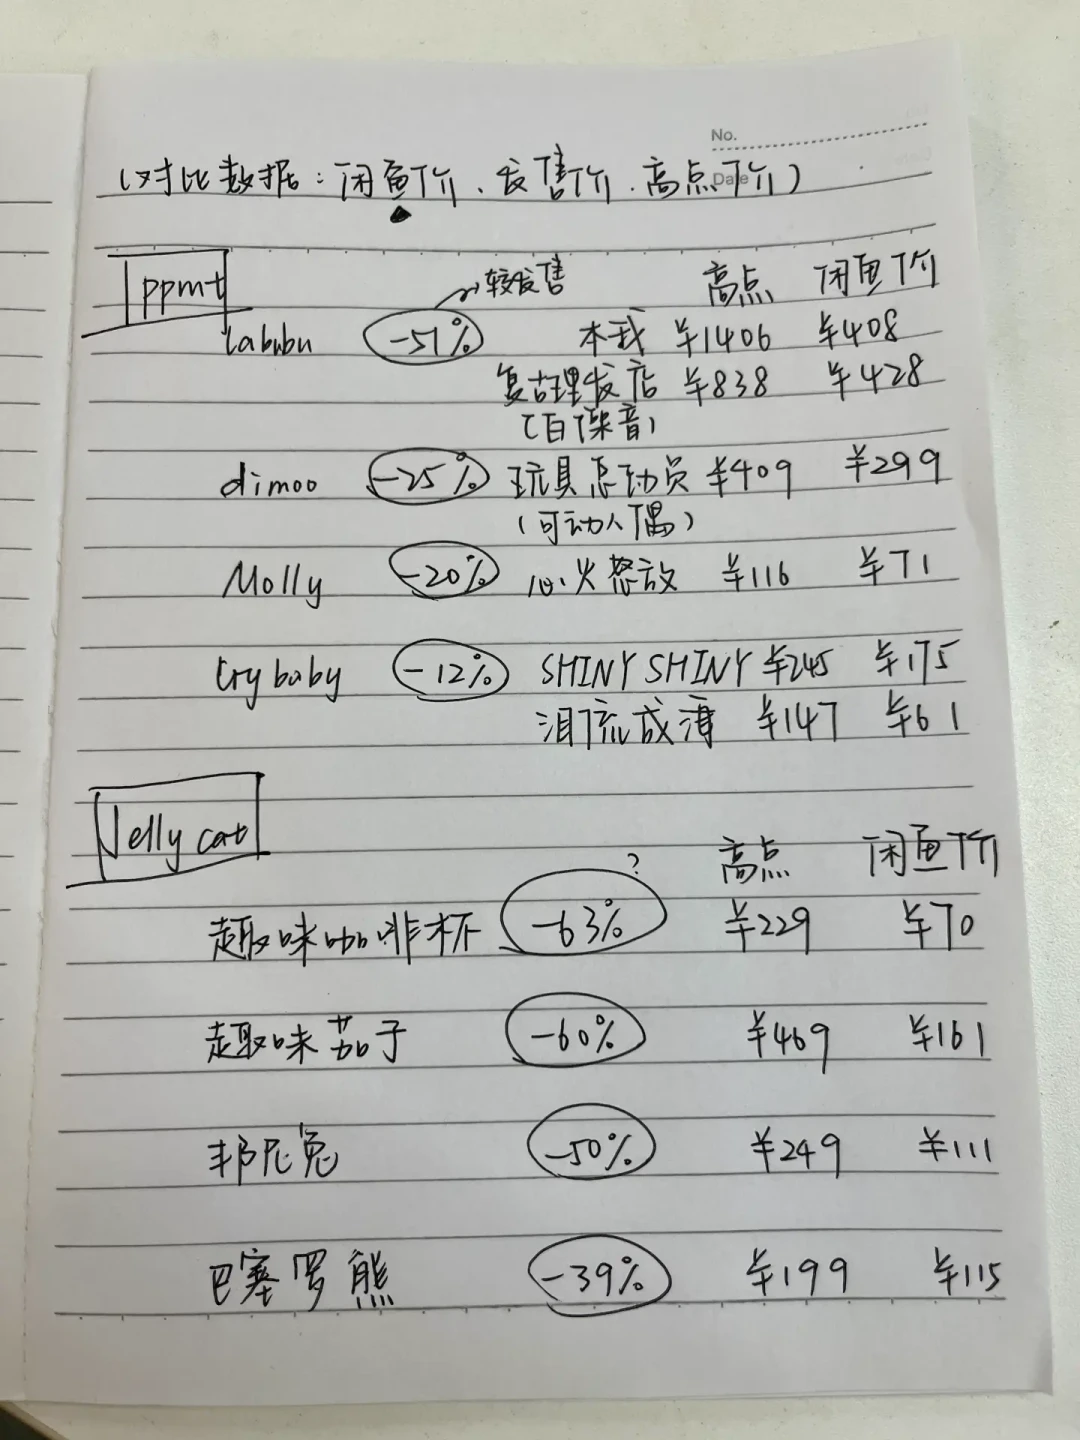 No.
Date
(对比数据：闲鱼价、发售价、高点价)
ppmt
较发售 高点 闲鱼价
labubu -51% 本我 ¥1406 ¥408
复古理发店 ¥838 ¥428
(白噪音)
dimoo -25% 玩具总动员 ¥409 ¥299
(可动人偶)
Molly -20% 心火怒放 ¥116 ¥71
Crybaby -12% SHINY SHINY ¥245 ¥175
泪流成薄 ¥147 ¥61
Jelly cat
? 高点 闲鱼价
趣味咖啡杯 -63% ¥229 ¥70
趣味茄子 -60% ¥469 ¥161
邦尼兔 -50% ¥249 ¥111
巴塞罗熊 -39% ¥199 ¥115